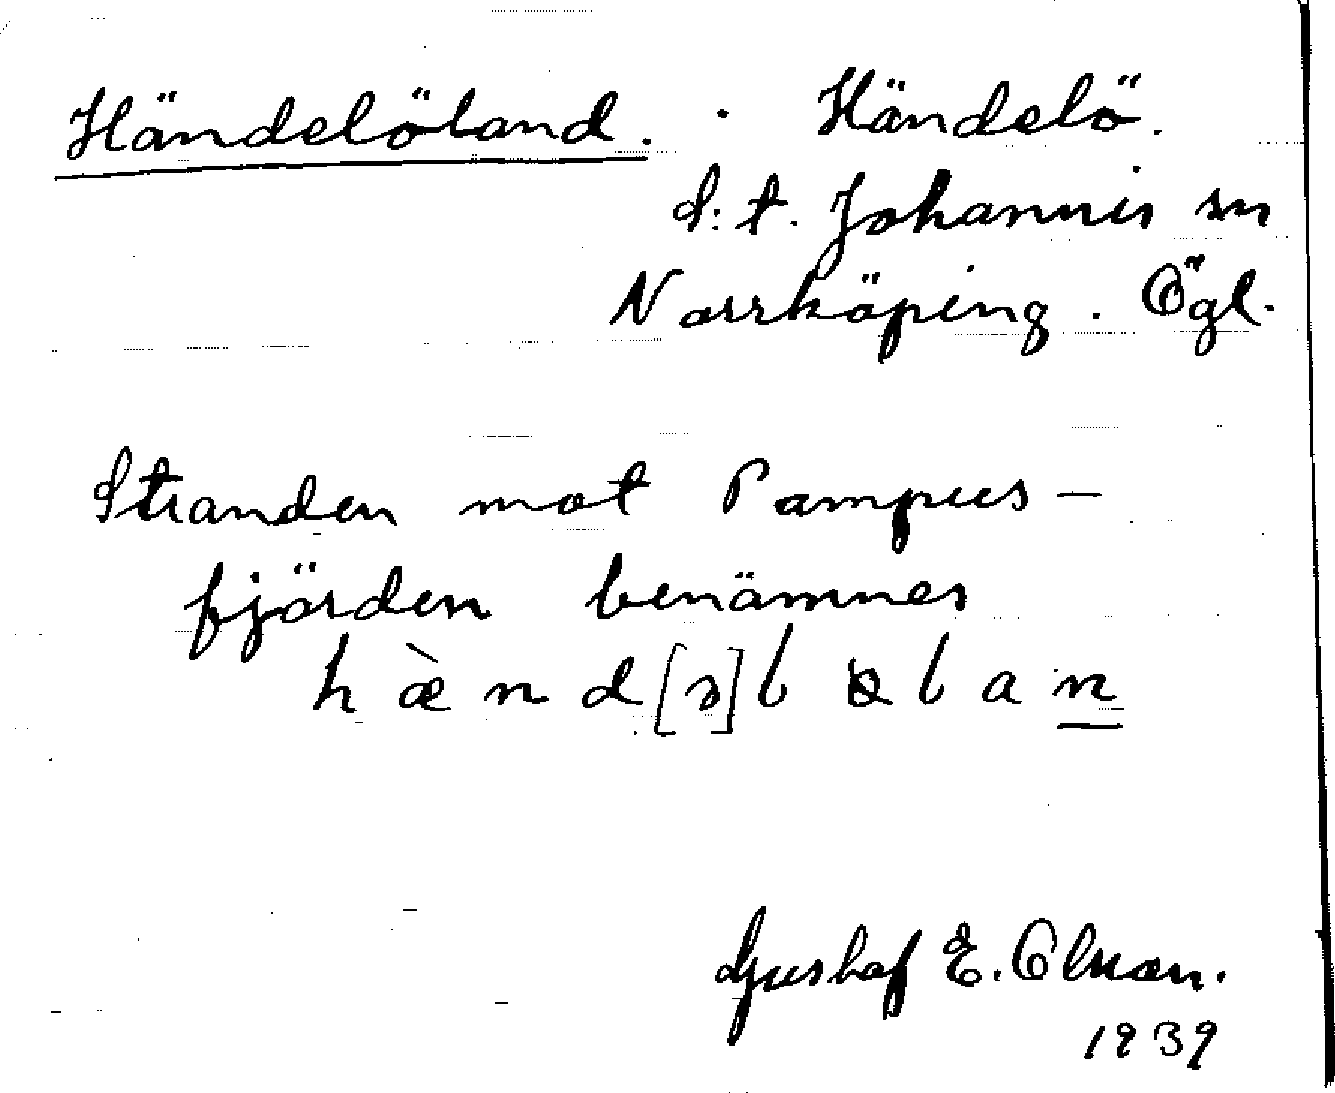 Händelöland. Händelö.
S:t. Johannis sn
Norrköping. Ögl.
Stranden mot Pampus-
fjärden benämnes
hæ̀nd[ə]l lan
Gustaf E. Olsson.
1939